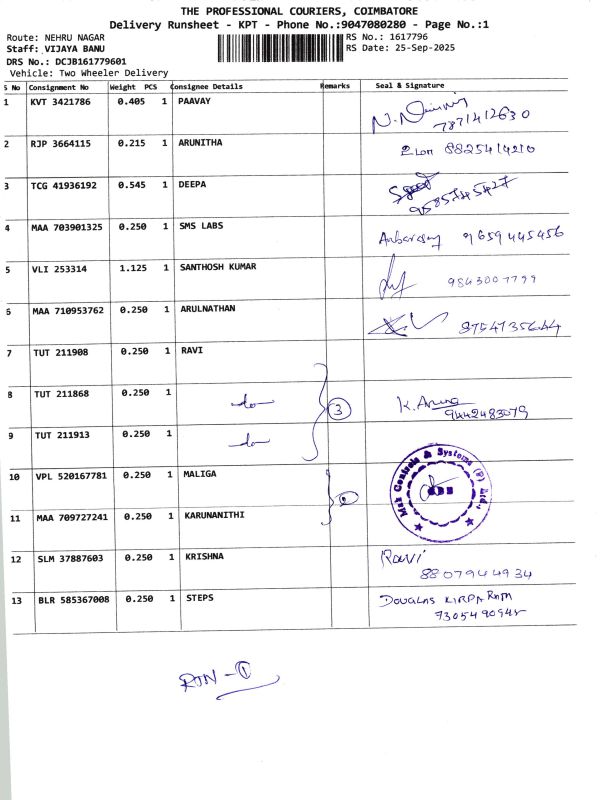 THE PROFESSIONAL COURIERS, COIMBATORE
Delivery Runsheet - KPT - Phone No.:9047080280 - Page No.:1
Route: NEHRU NAGAR RS No.: 1617796
Staff: VIJAYA BANU RS Date: 25-Sep-2025
DRS No.: DCJB161779601
Vehicle: Two Wheeler Delivery
S No Consignment No Weight PCS Consignee Details Remarks Seal & Signature
1 KVT 3421786 0.405 1 PAAVAY
7871412630
2 RJP 3664115 0.215 1 ARUNITHA 8825414210
3 TCG 41936192 0.545 1 DEEPA
9585745427
4 MAA 703901325 0.250 1 SMS LABS
9659445456
5 VLI 253314 1.125 1 SANTHOSH KUMAR
9843007799
6 MAA 710953762 0.250 1 ARULNATHAN
8754735644
7 TUT 211908 0.250 1 RAVI
8 TUT 211868 0.250 1 do 3 K. Aruna
9442483079
9 TUT 211913 0.250 1 do
10 VPL 520167781 0.250 1 MALIGA
Mak Controls & Systems (P) Ltd.,
11 MAA 709727241 0.250 1 KARUNANITHI
12 SLM 37887603 0.250 1 KRISHNA Ravi
8807944934
13 BLR 585367008 0.250 1 STEPS DOUGLAS KIRPA RAM
RTN - 1